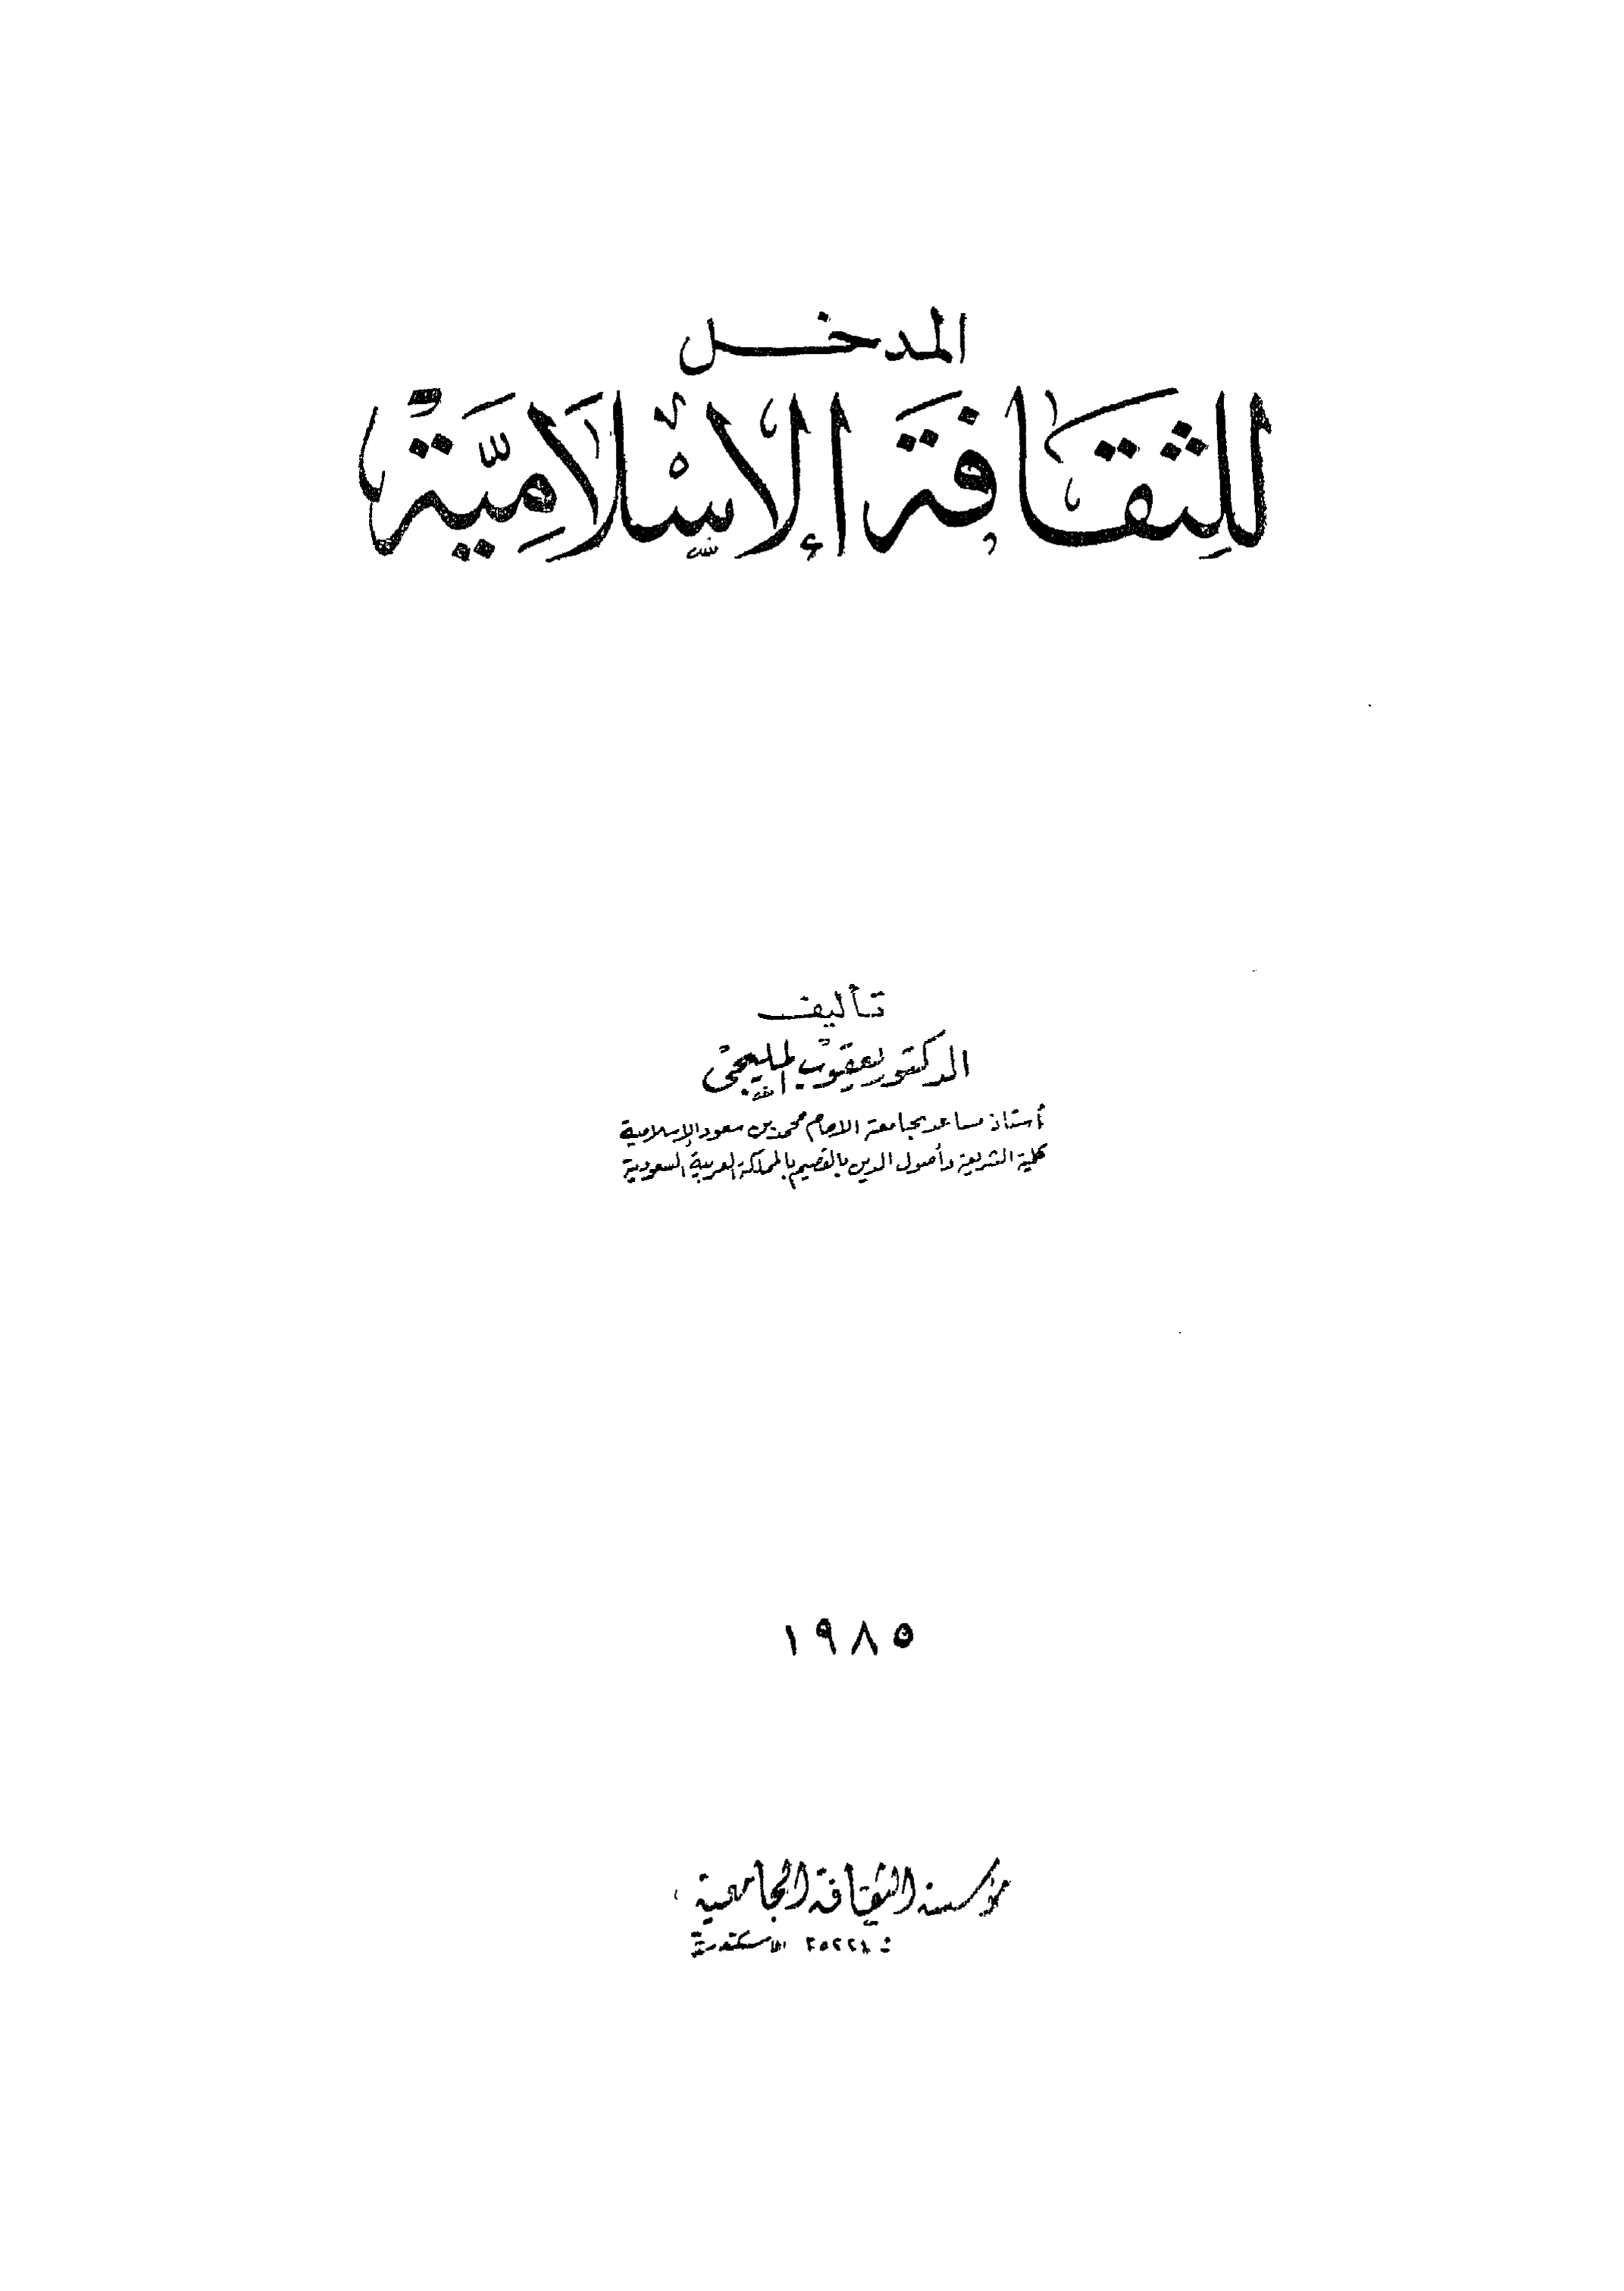 المدخل
للثقافة الإسلامية
تأليف
الدكتور يعقوب المليجى
أستاذ مساعد بجامعة الامام محمد بن سعود الإسلامية
كلية الشريعة وأصول الدين بالقصيم بالمملكة العربية السعودية
١٩٨٥
مؤسسة الثقافة الجامعية
الاسكندرية